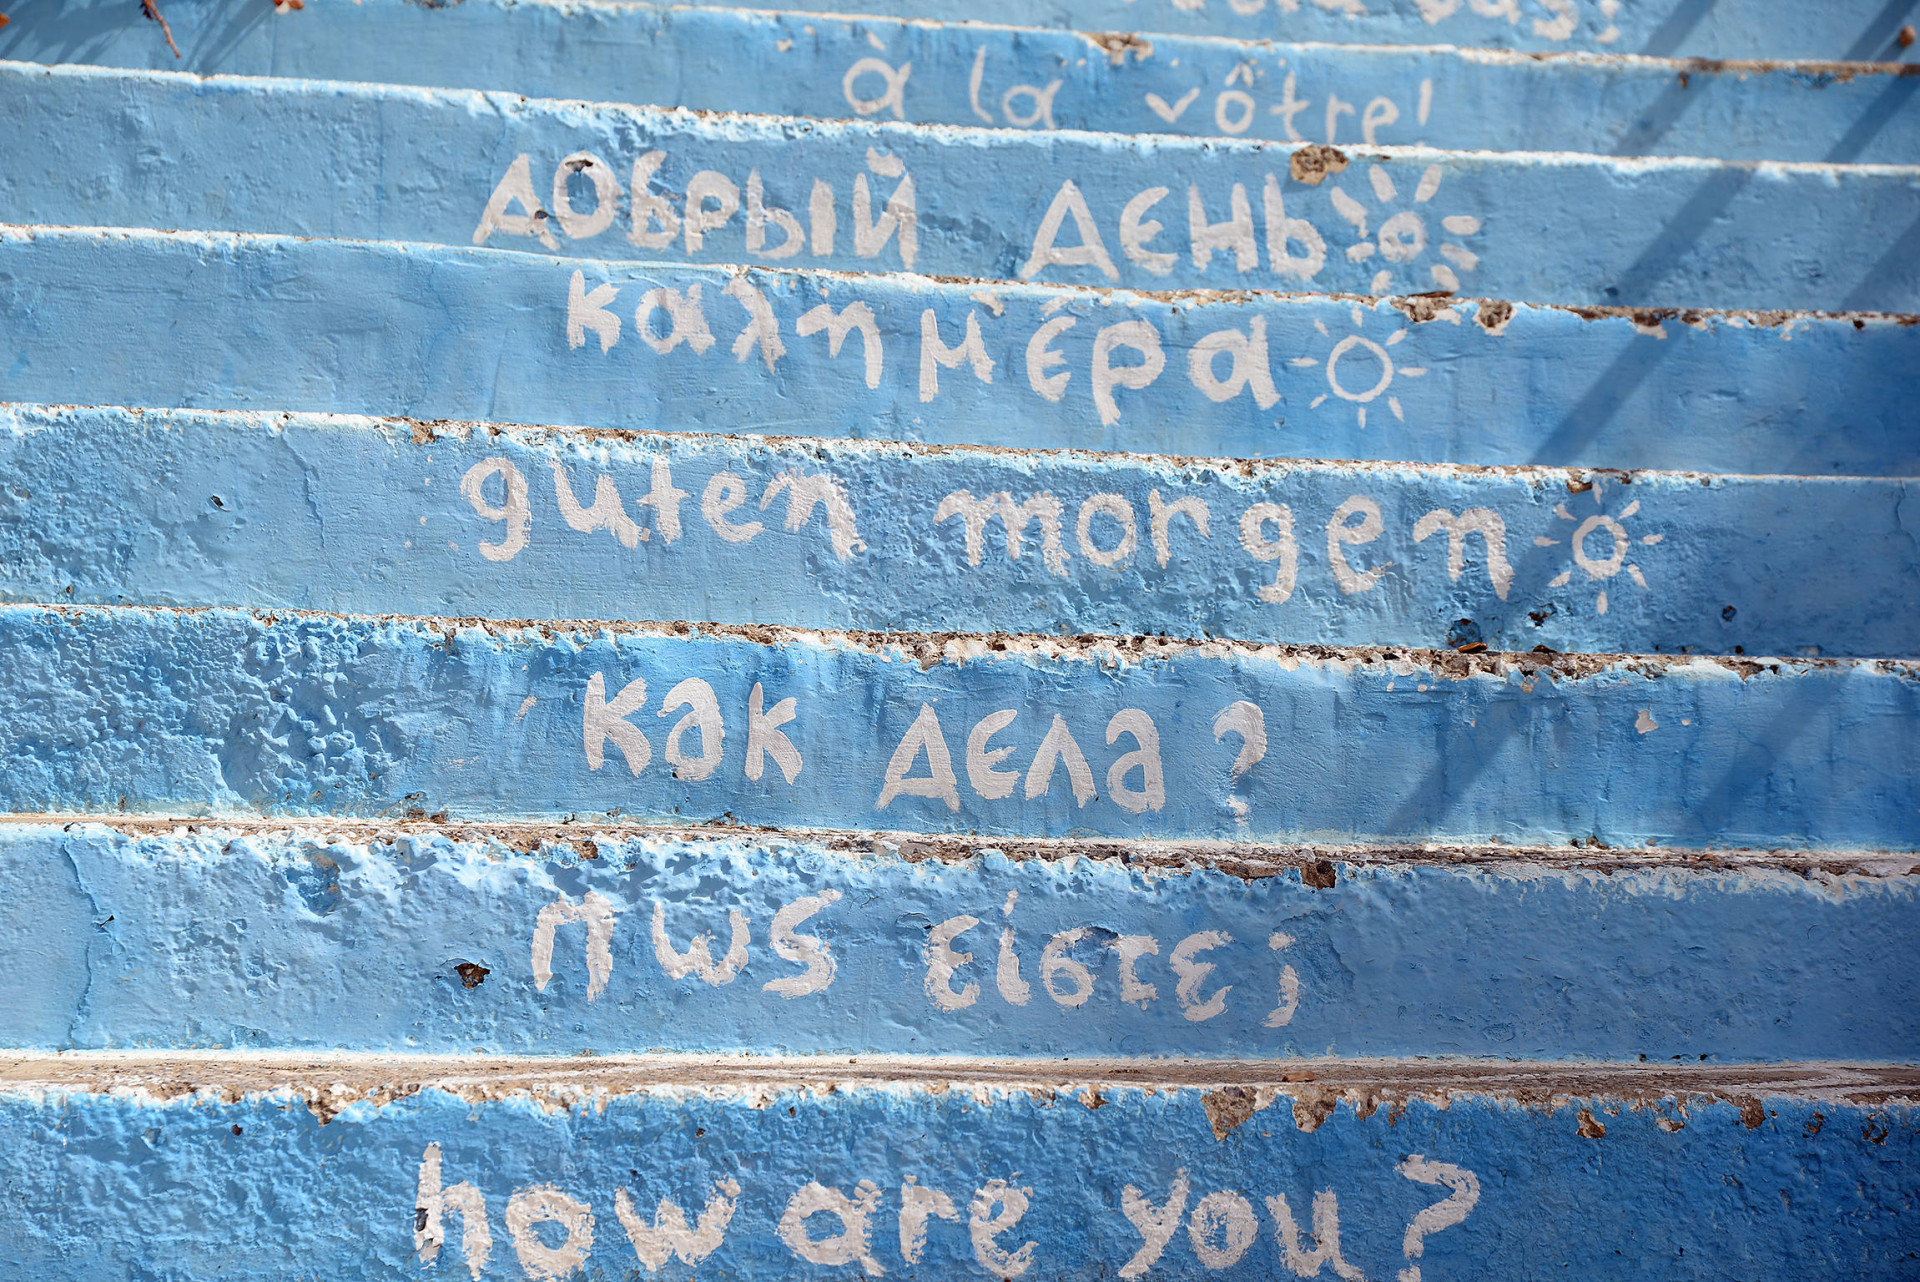 à la vôtre!
добрый день
καλημέρα
guten morgen
как дела?
πως είστε;
how are you?